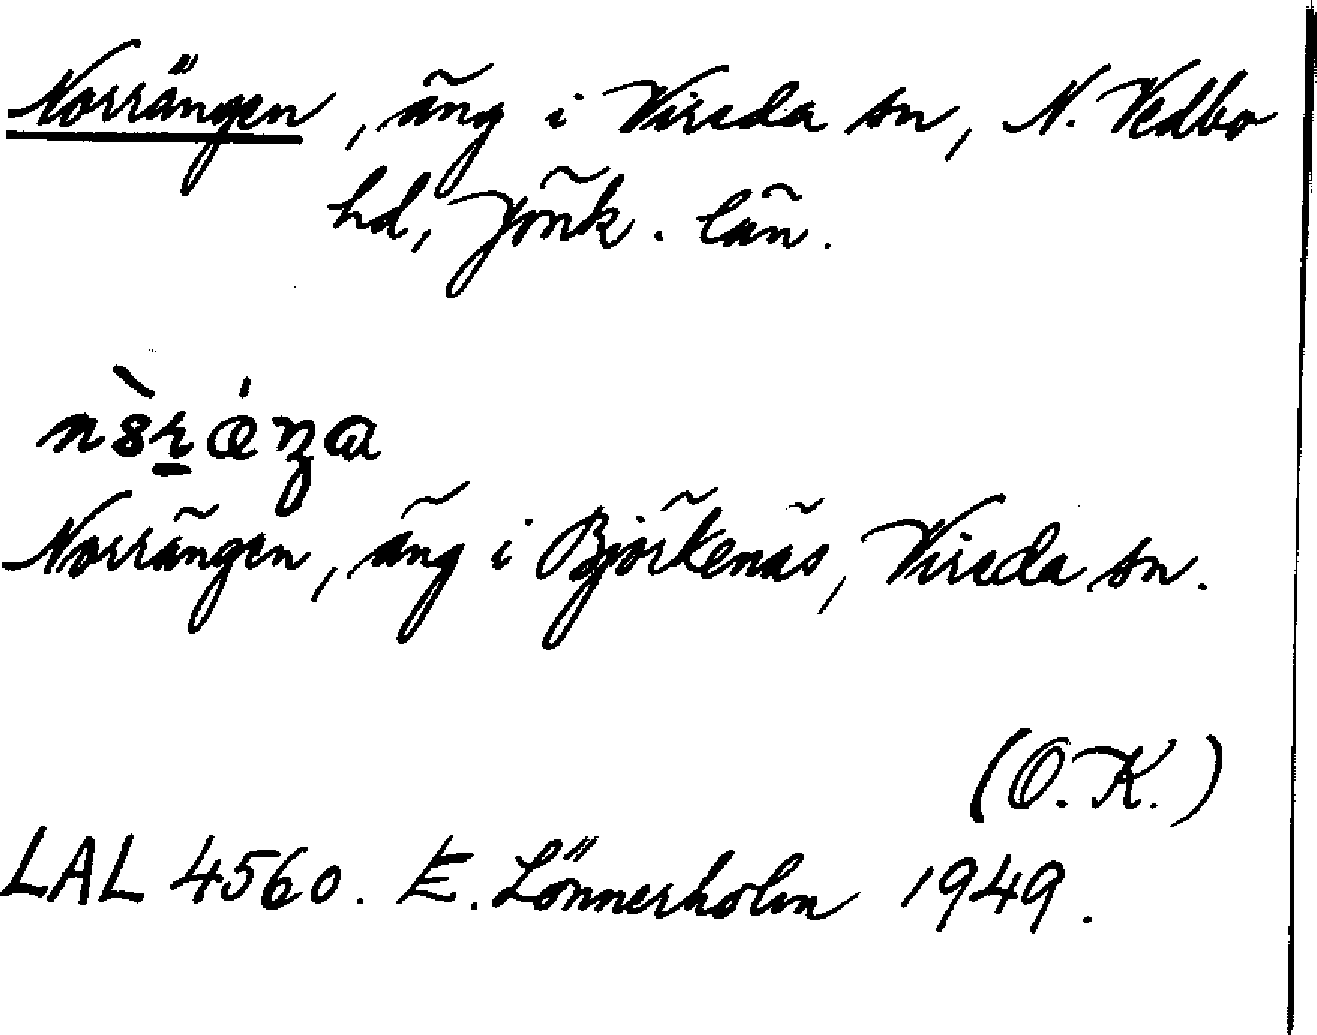 Norrängen, äng i Vireda sn, N. Vedbo
hd, Jönk. län.
Norrängen, äng i Björkenäs, Vireda sn.
(O.K.)
LAL 4560. E. Lönnerholm 1949.